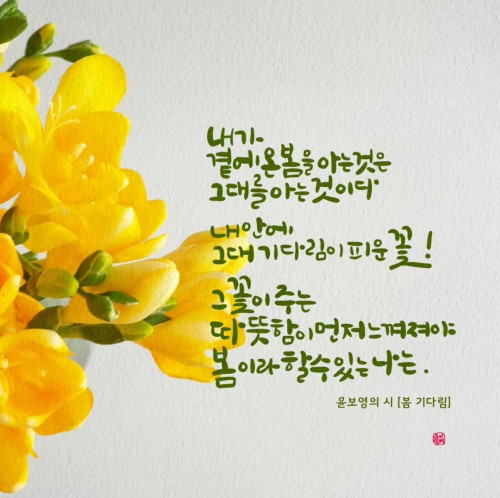 내가
곁에 온 봄을 아는 것은
그대를 아는 것이다
내 안에
그대 기다림이 피운 꽃!
그 꽃이 주는
따뜻함이 먼저 느껴져야
봄이라 할 수 있는 나는.
윤보영의 시 [봄 기다림]